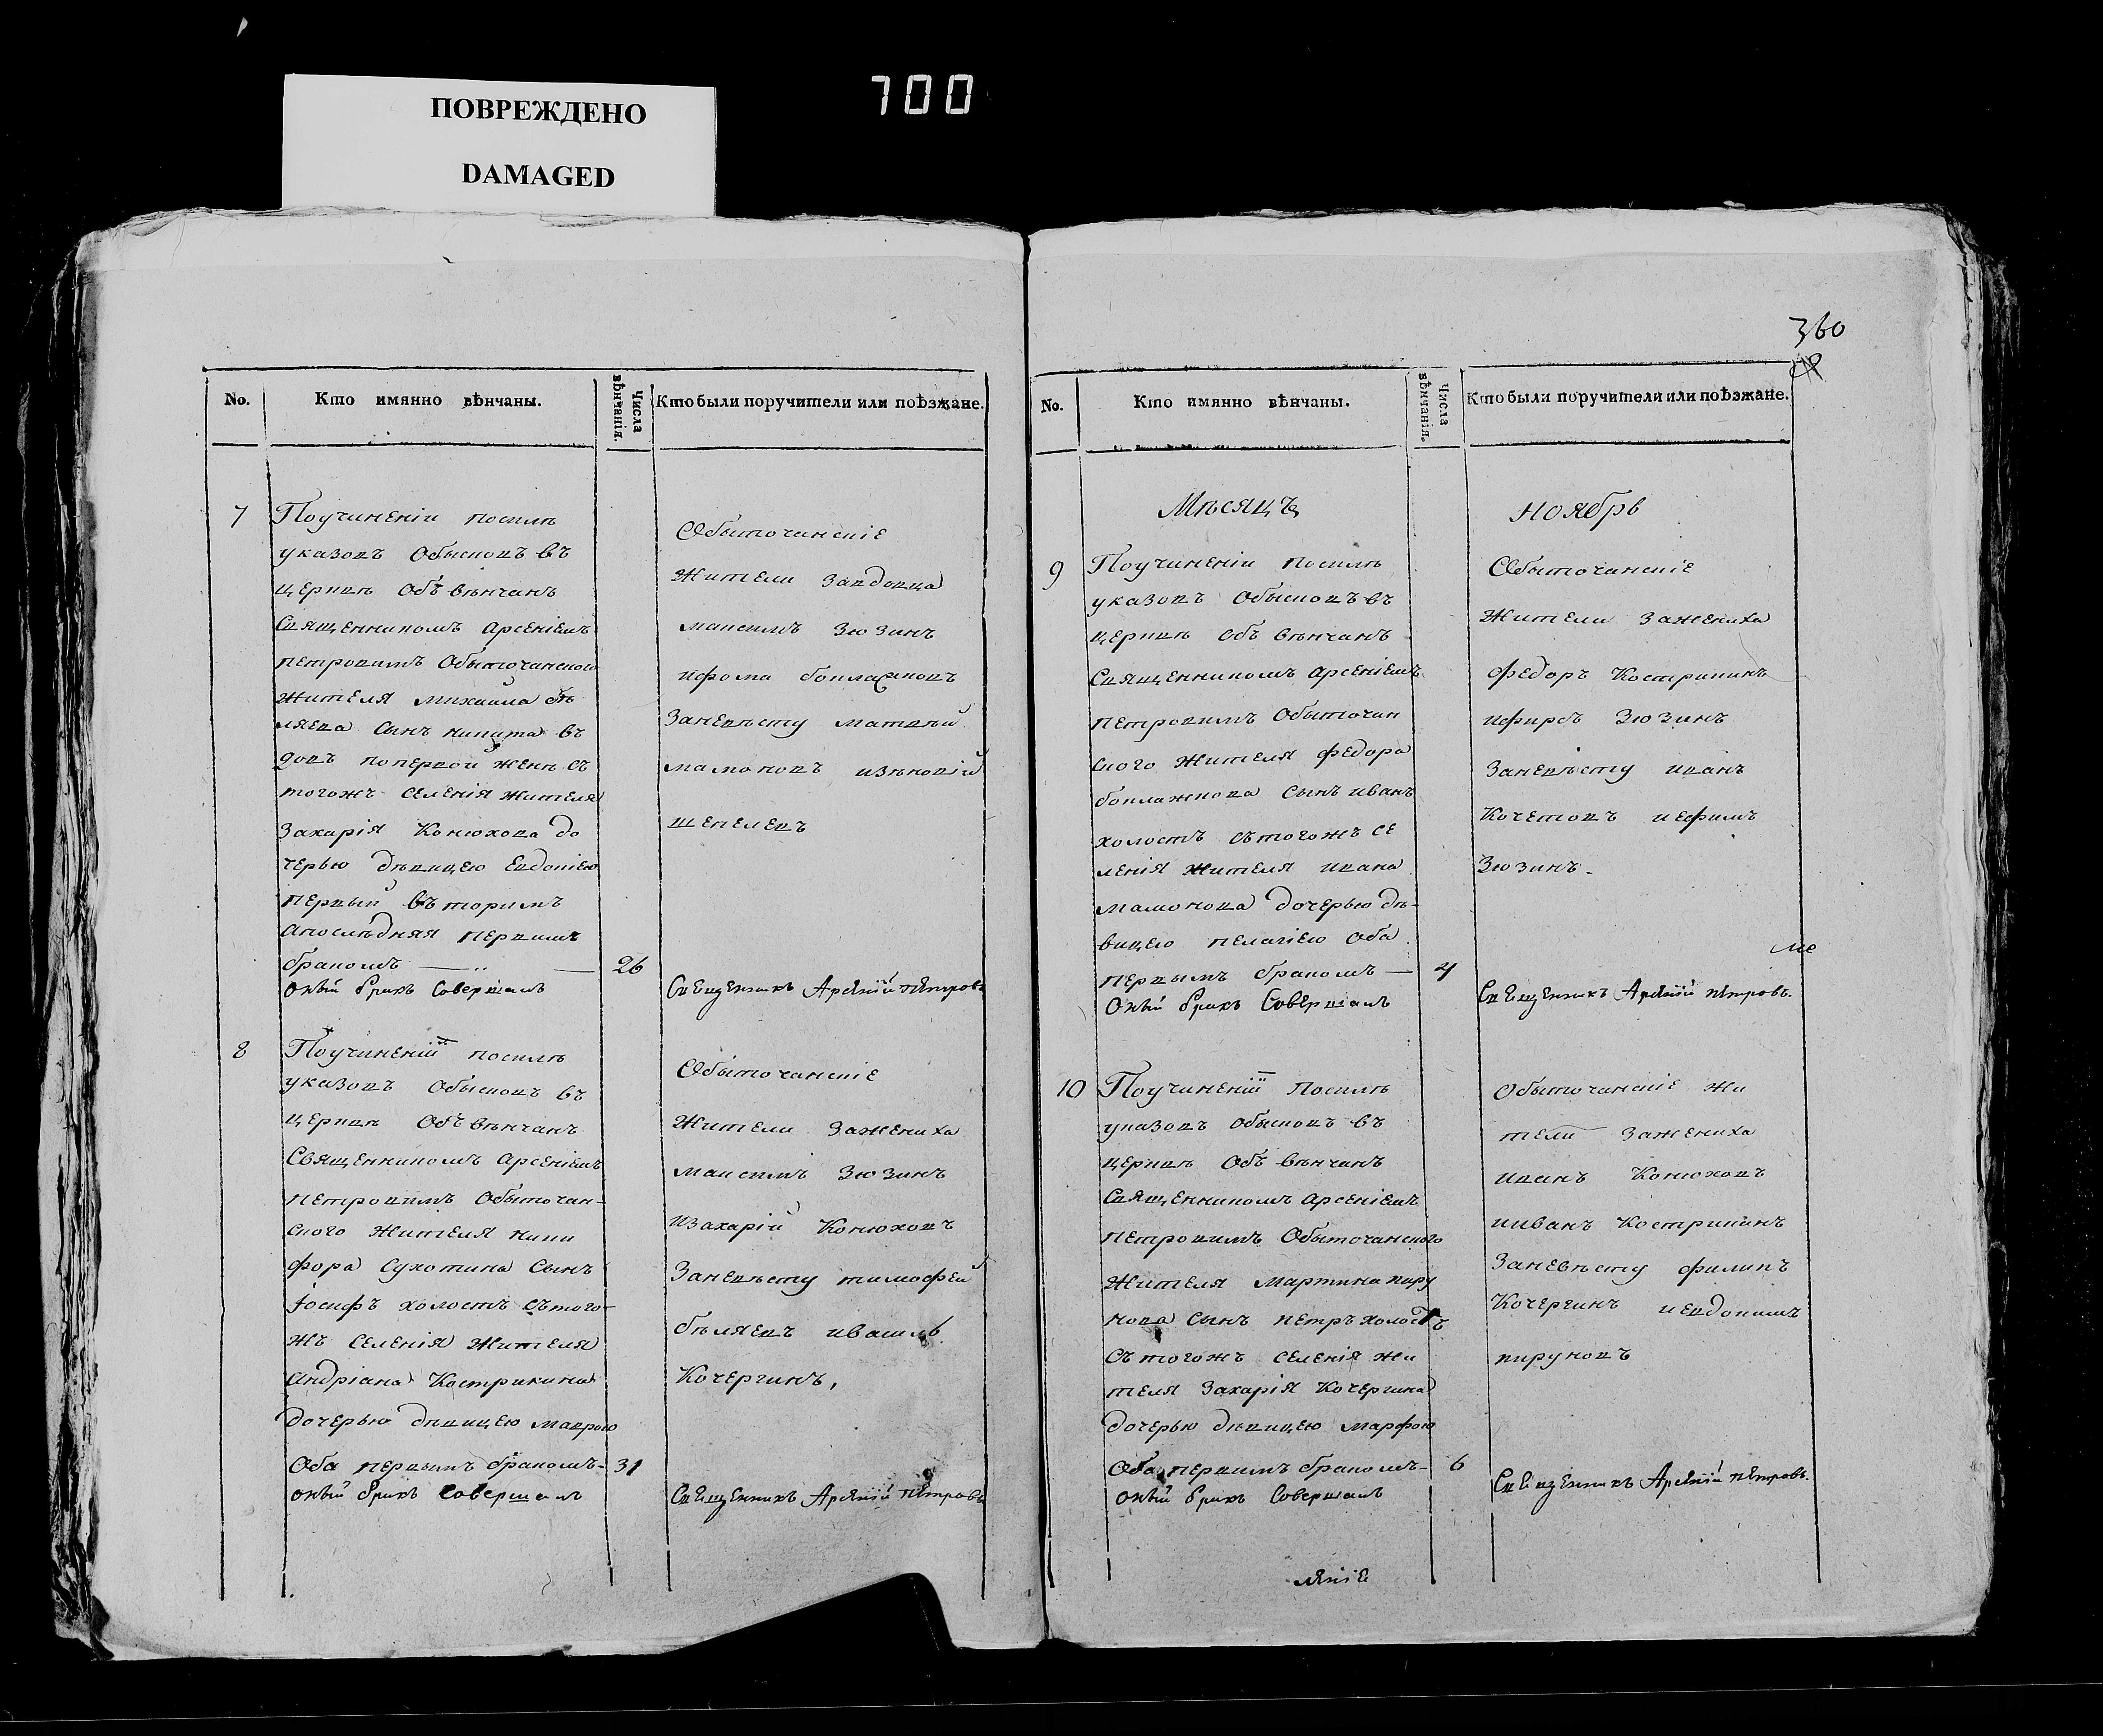 700
ПОВРЕЖДЕНО
DAMAGED
No.
Кто имянно вѣнчаны.
Числа вѣнчанія.
Кто были поручители или поѣзжане.
7
Поучиненіи посилѣ
указовъ Обысковъ въ
церквѣ Объ вѣнчанъ
Священникомъ Арсеніемъ
петровимъ Обыточанского
Жителя михаила бѣ
ляева Сынъ никита въ
довъ поперьвой женѣ съ
тогожъ селенія жителя
Захарія Конюхова до
черью дѣвицею Евдокією
первый вѣторимъ
апослѣдняя первимъ
бракомъ — 26
Оный бракъ Совершалъ
Обыточанскіе
Жители Завдовца
максимъ Зюзинъ
ифома
Заневѣсту матвѣй
мамоновъ
шепелевъ
Священникъ Арсеній петровъ
8
Поучиненіи посилѣ
указовъ Обысковъ въ
церквѣ Объ вѣнчанъ
Священникомъ Арсеніемъ
Петровимъ Обыточан-
ского Жителя ники
фора Сухотина Сынъ
Іосифъ холостъ сътого-
жъ селенія Жителя
андріана Кострикина
дочерью дѣвицею маврою
Оба первымъ бракомъ- 31
Оный бракъ Совершалъ
Обыточанскіе
Жители Зажениха
максимъ Зюзинъ
изахарій Конюховъ
Заневѣсту тимофей
бѣляевъ
Кочергинъ,
Священникъ Арсеній петровъ
360
No.
Кто имянно вѣнчаны.
Числа вѣнчанія.
Кто были поручители или поѣзжане.
Мѣсяцъ Ноябрь
9
Поучиненіи Посилѣ
указовъ Обысковъ въ
церквѣ Объ вѣнчанъ
Священникомъ Арсеніемъ
петровимъ Обыточан
ского Жителя федора
боклажкова Сынъ иванъ
холостъ сътогожъ се
ленія жителя ивана
мамонова дочерью дѣ-
вицею пелагією Оба
первымъ бракомъ — 4
Оный бракъ Совершалъ
Обыточанскіе
Жители Зажениха
федоръ Кострикинъ
ифирсъ Зюзинъ
Заневѣсту иванъ
Кочетовъ иефимъ
Зюзинъ.
Священникъ Арсеній петровъ.
10
Поучиненіи Посилѣ
указовъ обысковъ въ
церквѣ Объ вѣнчанъ
Священникомъ Арсеніемъ
Петровимъ Обыточанского
Жителя Мартина пиру
нова сынъ петръ холостъ
Сътогожъ селенія жи
теля Захарія Кочергина
дочерью дѣвицею марфою
Оба первимъ бракомъ- 6
Оный бракъ Совершалъ
Обыточанскіе жи
тели Зажениха
иванъ Конюховъ
ииванъ Кострикинъ
Заневѣсту филипъ
Кочергинъ иевдокимъ
пируновъ
Священникъ Арсеній петровъ.